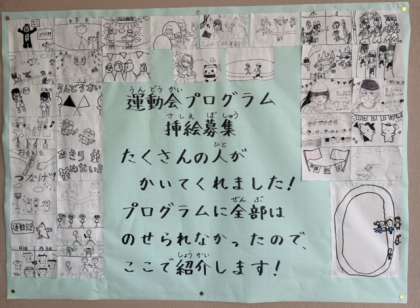 運動会プログラム
挿絵募集
たくさんの人が
かいてくれました!
プログラムに全部は
のせられなかったので、
ここで紹介します!